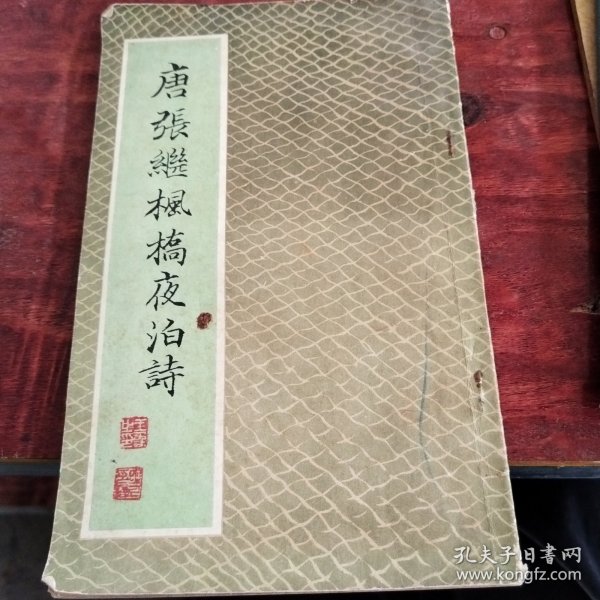 唐張繼楓橋夜泊詩
孔夫子旧书网
www.kongfz.com